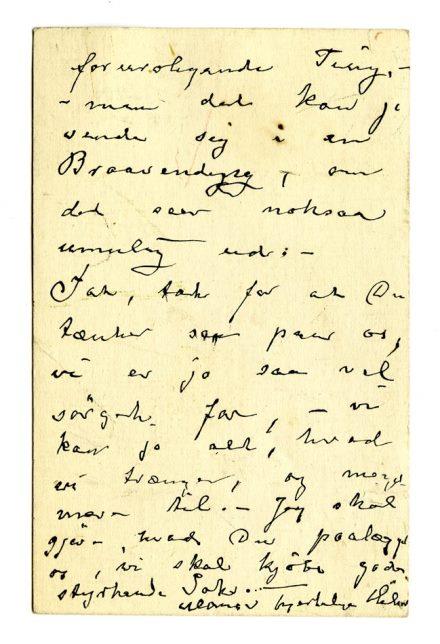 foruroligende Ting, -
- men det kan jo
vende sig i en
Braavending, om
det saa noksaa
umulig ud: -
Tak, tak for at Du
tænker paa os,
vi er jo saa vel
sörget for, - vi
har jo alt, hvad
vi trænger, og meget
mere til. - Jeg skal
gjöre hvad Du paalægger
os, vi skal kjöbe gode
styrkende
hjertelig Hilsen